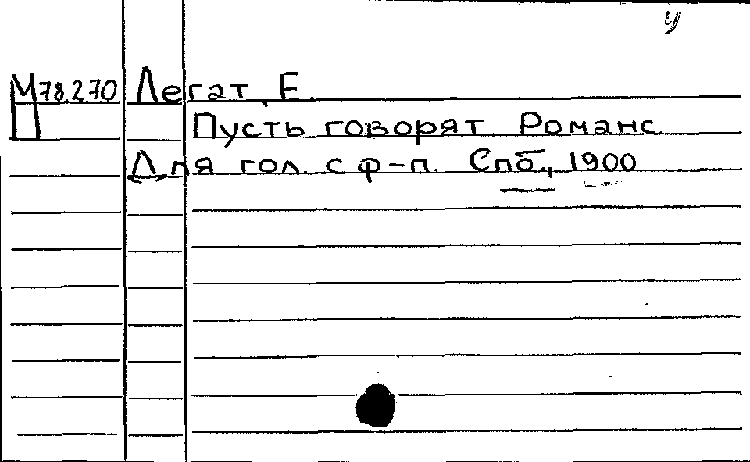 у
М78.270 Легат, Е.
П Пусть говорят. Романс
Для гол. с ф-п. Спб., 1900